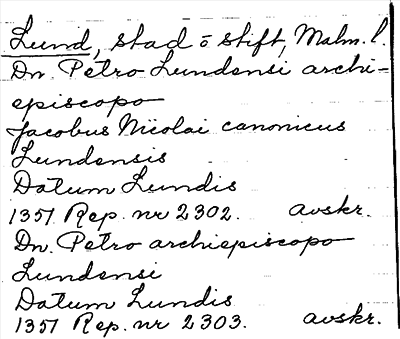 Lund, stad o stift, Malm. l.
Dn. Petro Lundensi archi-
episcopo
Jacobus Nicolai canonicus
Lundensis
Datum Lundis
1357 Rep. nr 2302. avskr.
Dn. Petro archiepiscopo
Lundensi
Datum Lundis
1357 Rep. nr 2303. avskr.